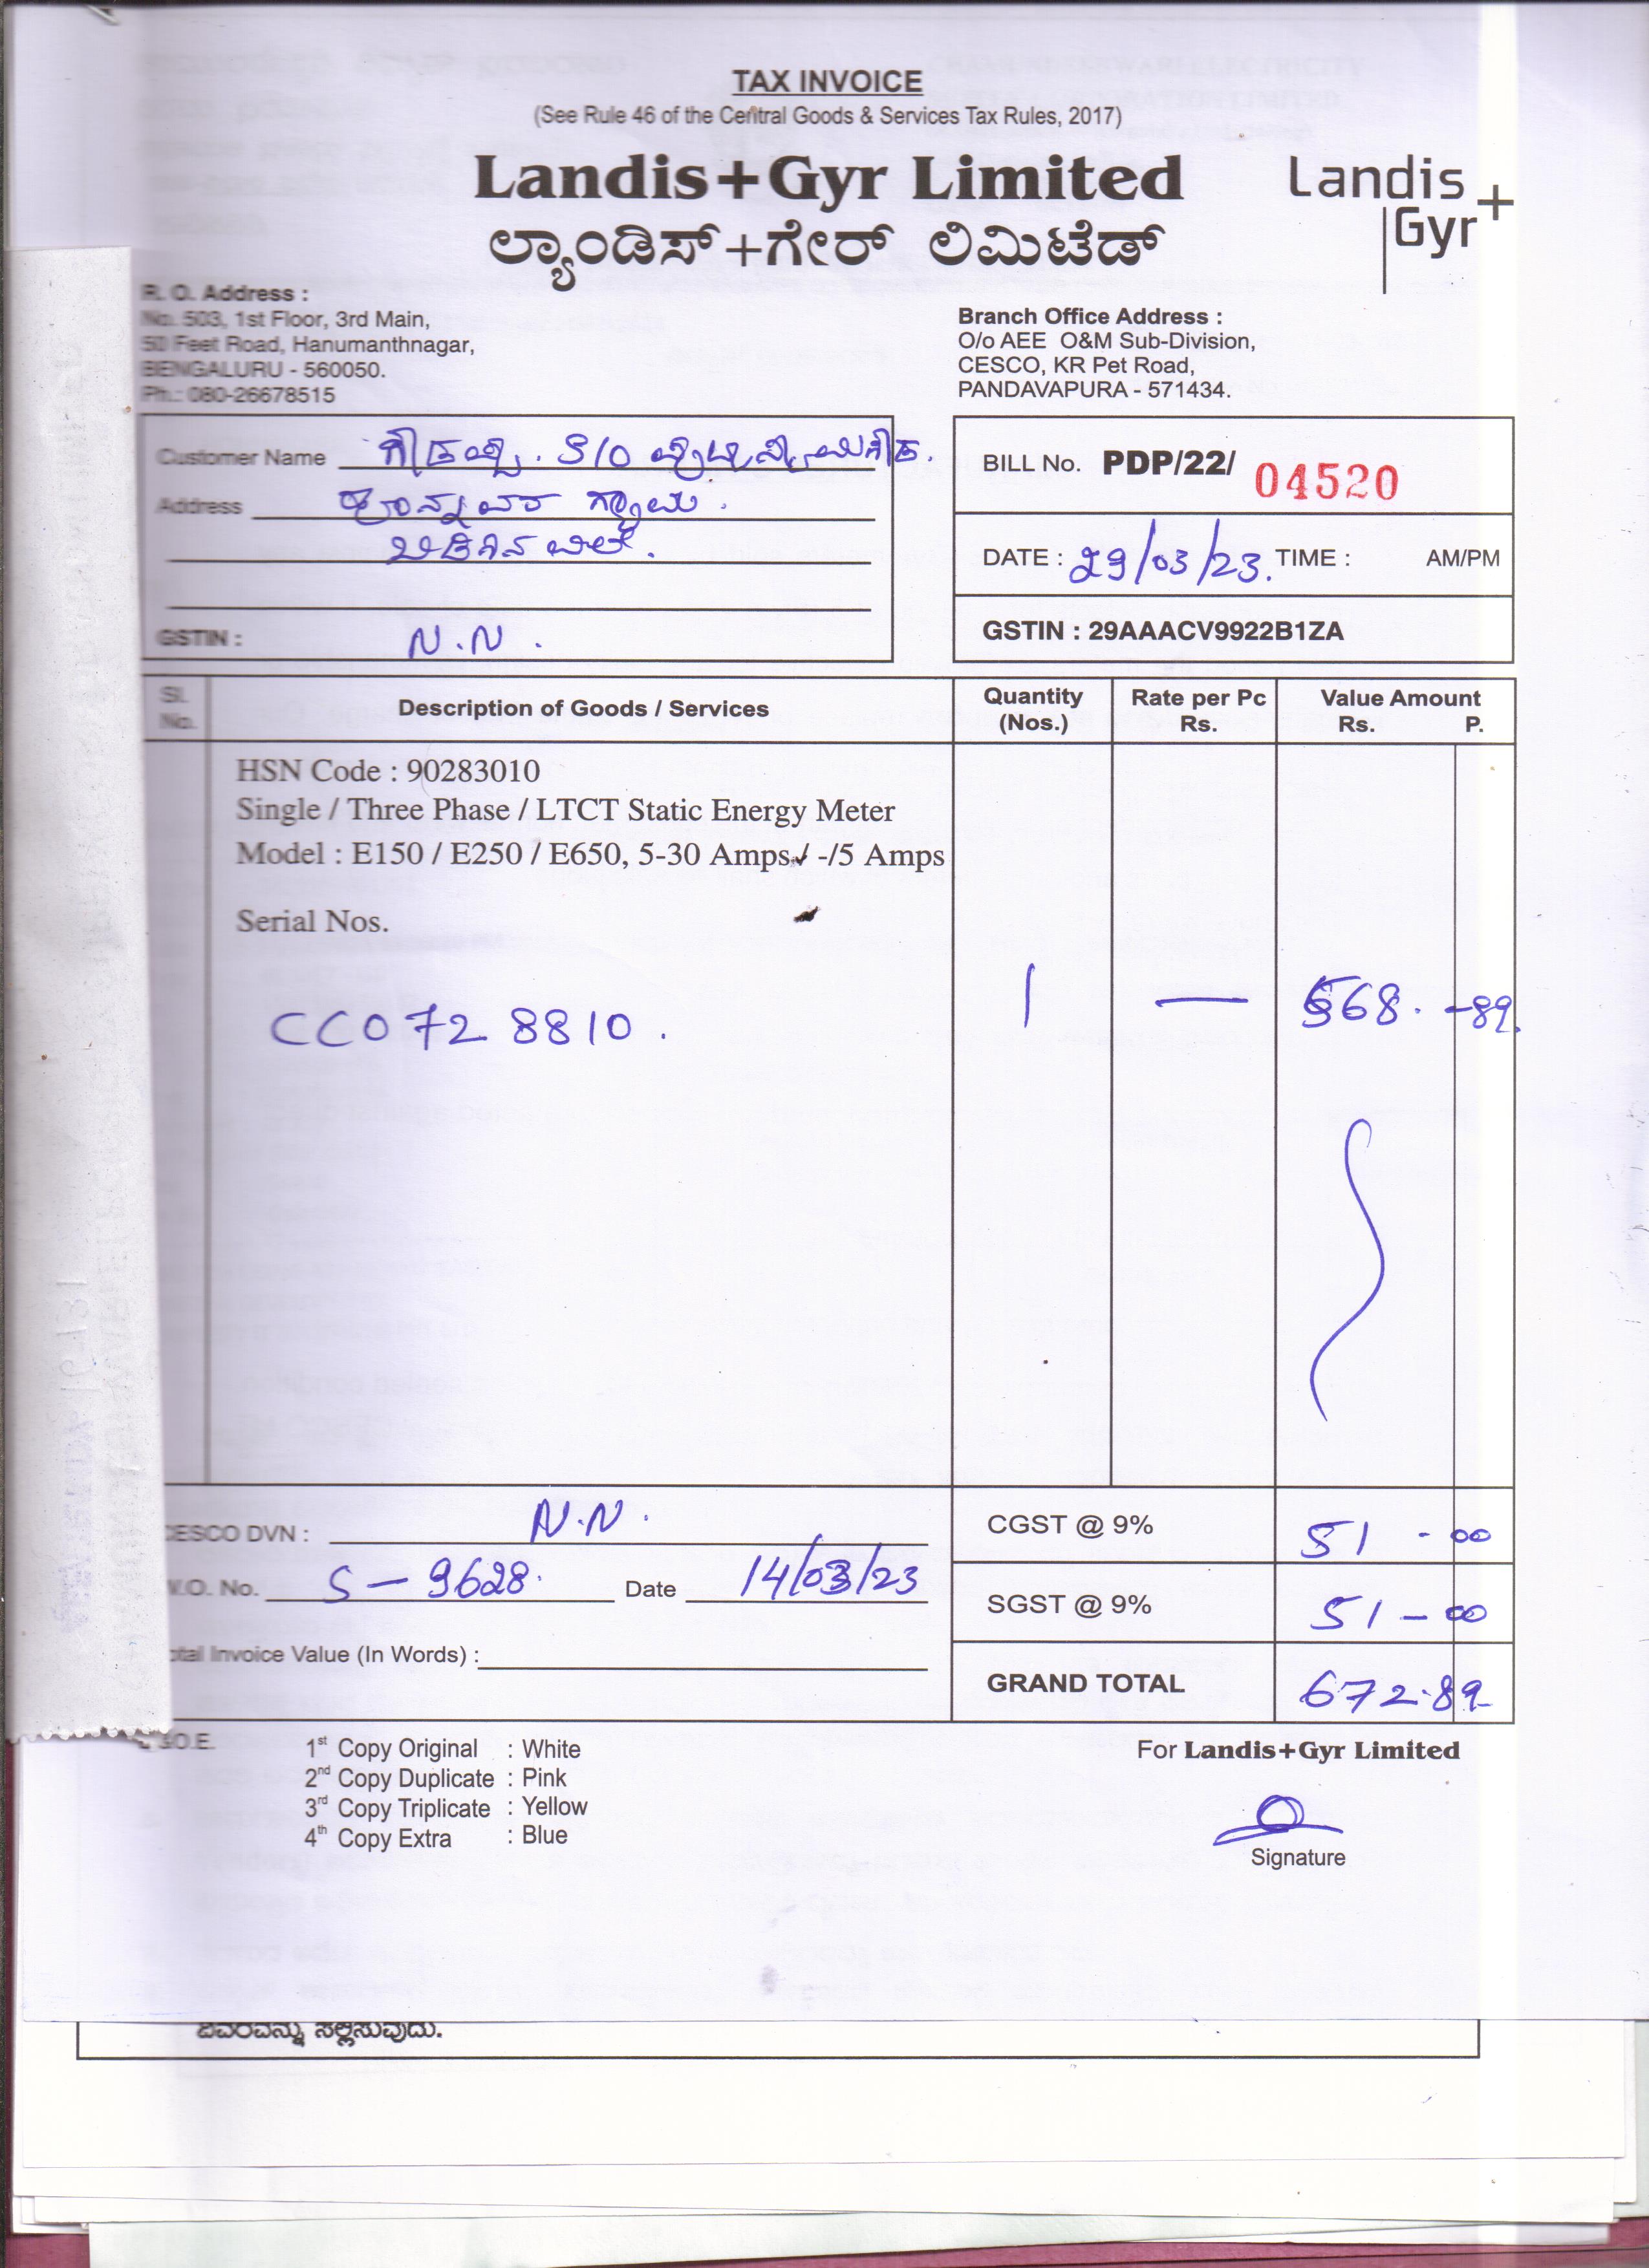 TAX INVOICE
(See Rule 46 of the Central Goods & Services Tax Rules, 2017)
Landis+Gyr Limited
ಲ್ಯಾಂಡಿಸ್+ಗೇರ್ ಲಿಮಿಟೆಡ್
Landis
Gyr+
R. O. Address :
No. 503, 1st Floor, 3rd Main,
50 Feet Road, Hanumanthnagar,
BENGALURU - 560050.
Ph.: 080-26678515
Branch Office Address :
O/o AEE O&M Sub-Division,
CESCO, KR Pet Road,
PANDAVAPURA - 571434.
Customer Name S/O
Address ಗ್ರಾಮ .
GSTIN : N.N .
BILL No. PDP/22/ 04520
DATE : 29/03/23. TIME : AM/PM
GSTIN : 29AAACV9922B1ZA
Sl. No. Description of Goods / Services Quantity (Nos.) Rate per Pc Rs. Value Amount Rs. P.
HSN Code : 90283010
Single / Three Phase / LTCT Static Energy Meter
Model : E150 / E250 / E650, 5-30 Amps / -/5 Amps
Serial Nos.
CC0728810 . 1 — 568. -89.
CESCO DVN : N.N .
W.O. No. S - 9628. Date 14/03/23
Total Invoice Value (In Words) :
CGST @ 9% 51 - 00
SGST @ 9% 51 - 00
GRAND TOTAL 672.89
E.&O.E.
1st Copy Original : White
2nd Copy Duplicate : Pink
3rd Copy Triplicate : Yellow
4th Copy Extra : Blue
For Landis+Gyr Limited
Signature
ವಿವರವನ್ನು ಸಲ್ಲಿಸುವುದು.